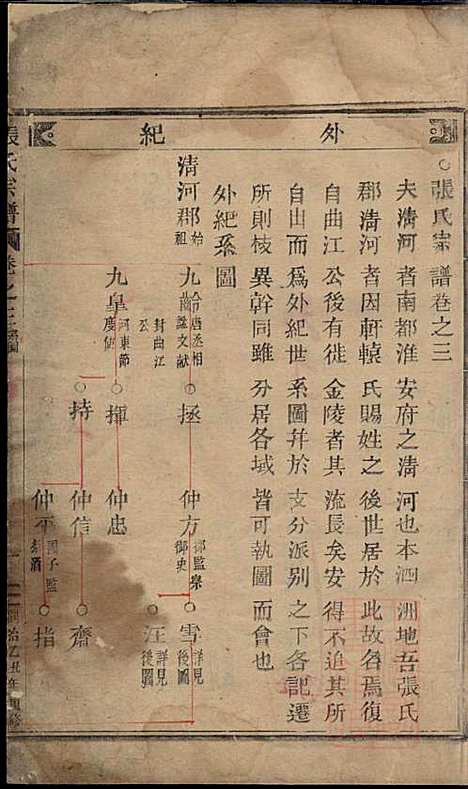 外紀
○張氏宗譜卷之三
夫清河者南都淮安府之清河也本泗洲地吾張氏
郡清河者因軒轅氏賜姓之後世居於此故名焉復
自曲江公後有徙金陵者其流長矣安得不追其所
自由而為外紀世系圖幷於支分派別之下各記遷
所則枝異幹同雖分居各域皆可執圖而會也
外紀系圖
清河郡始祖
九齡唐丞相諡文献封曲江公
拯
仲方御史
雪詳見後圖
汪詳見後圖
九皐河東節度使
揮
仲忠
持
仲信
齊
仲平國子監祭酒
指
張氏宗譜
卷之三